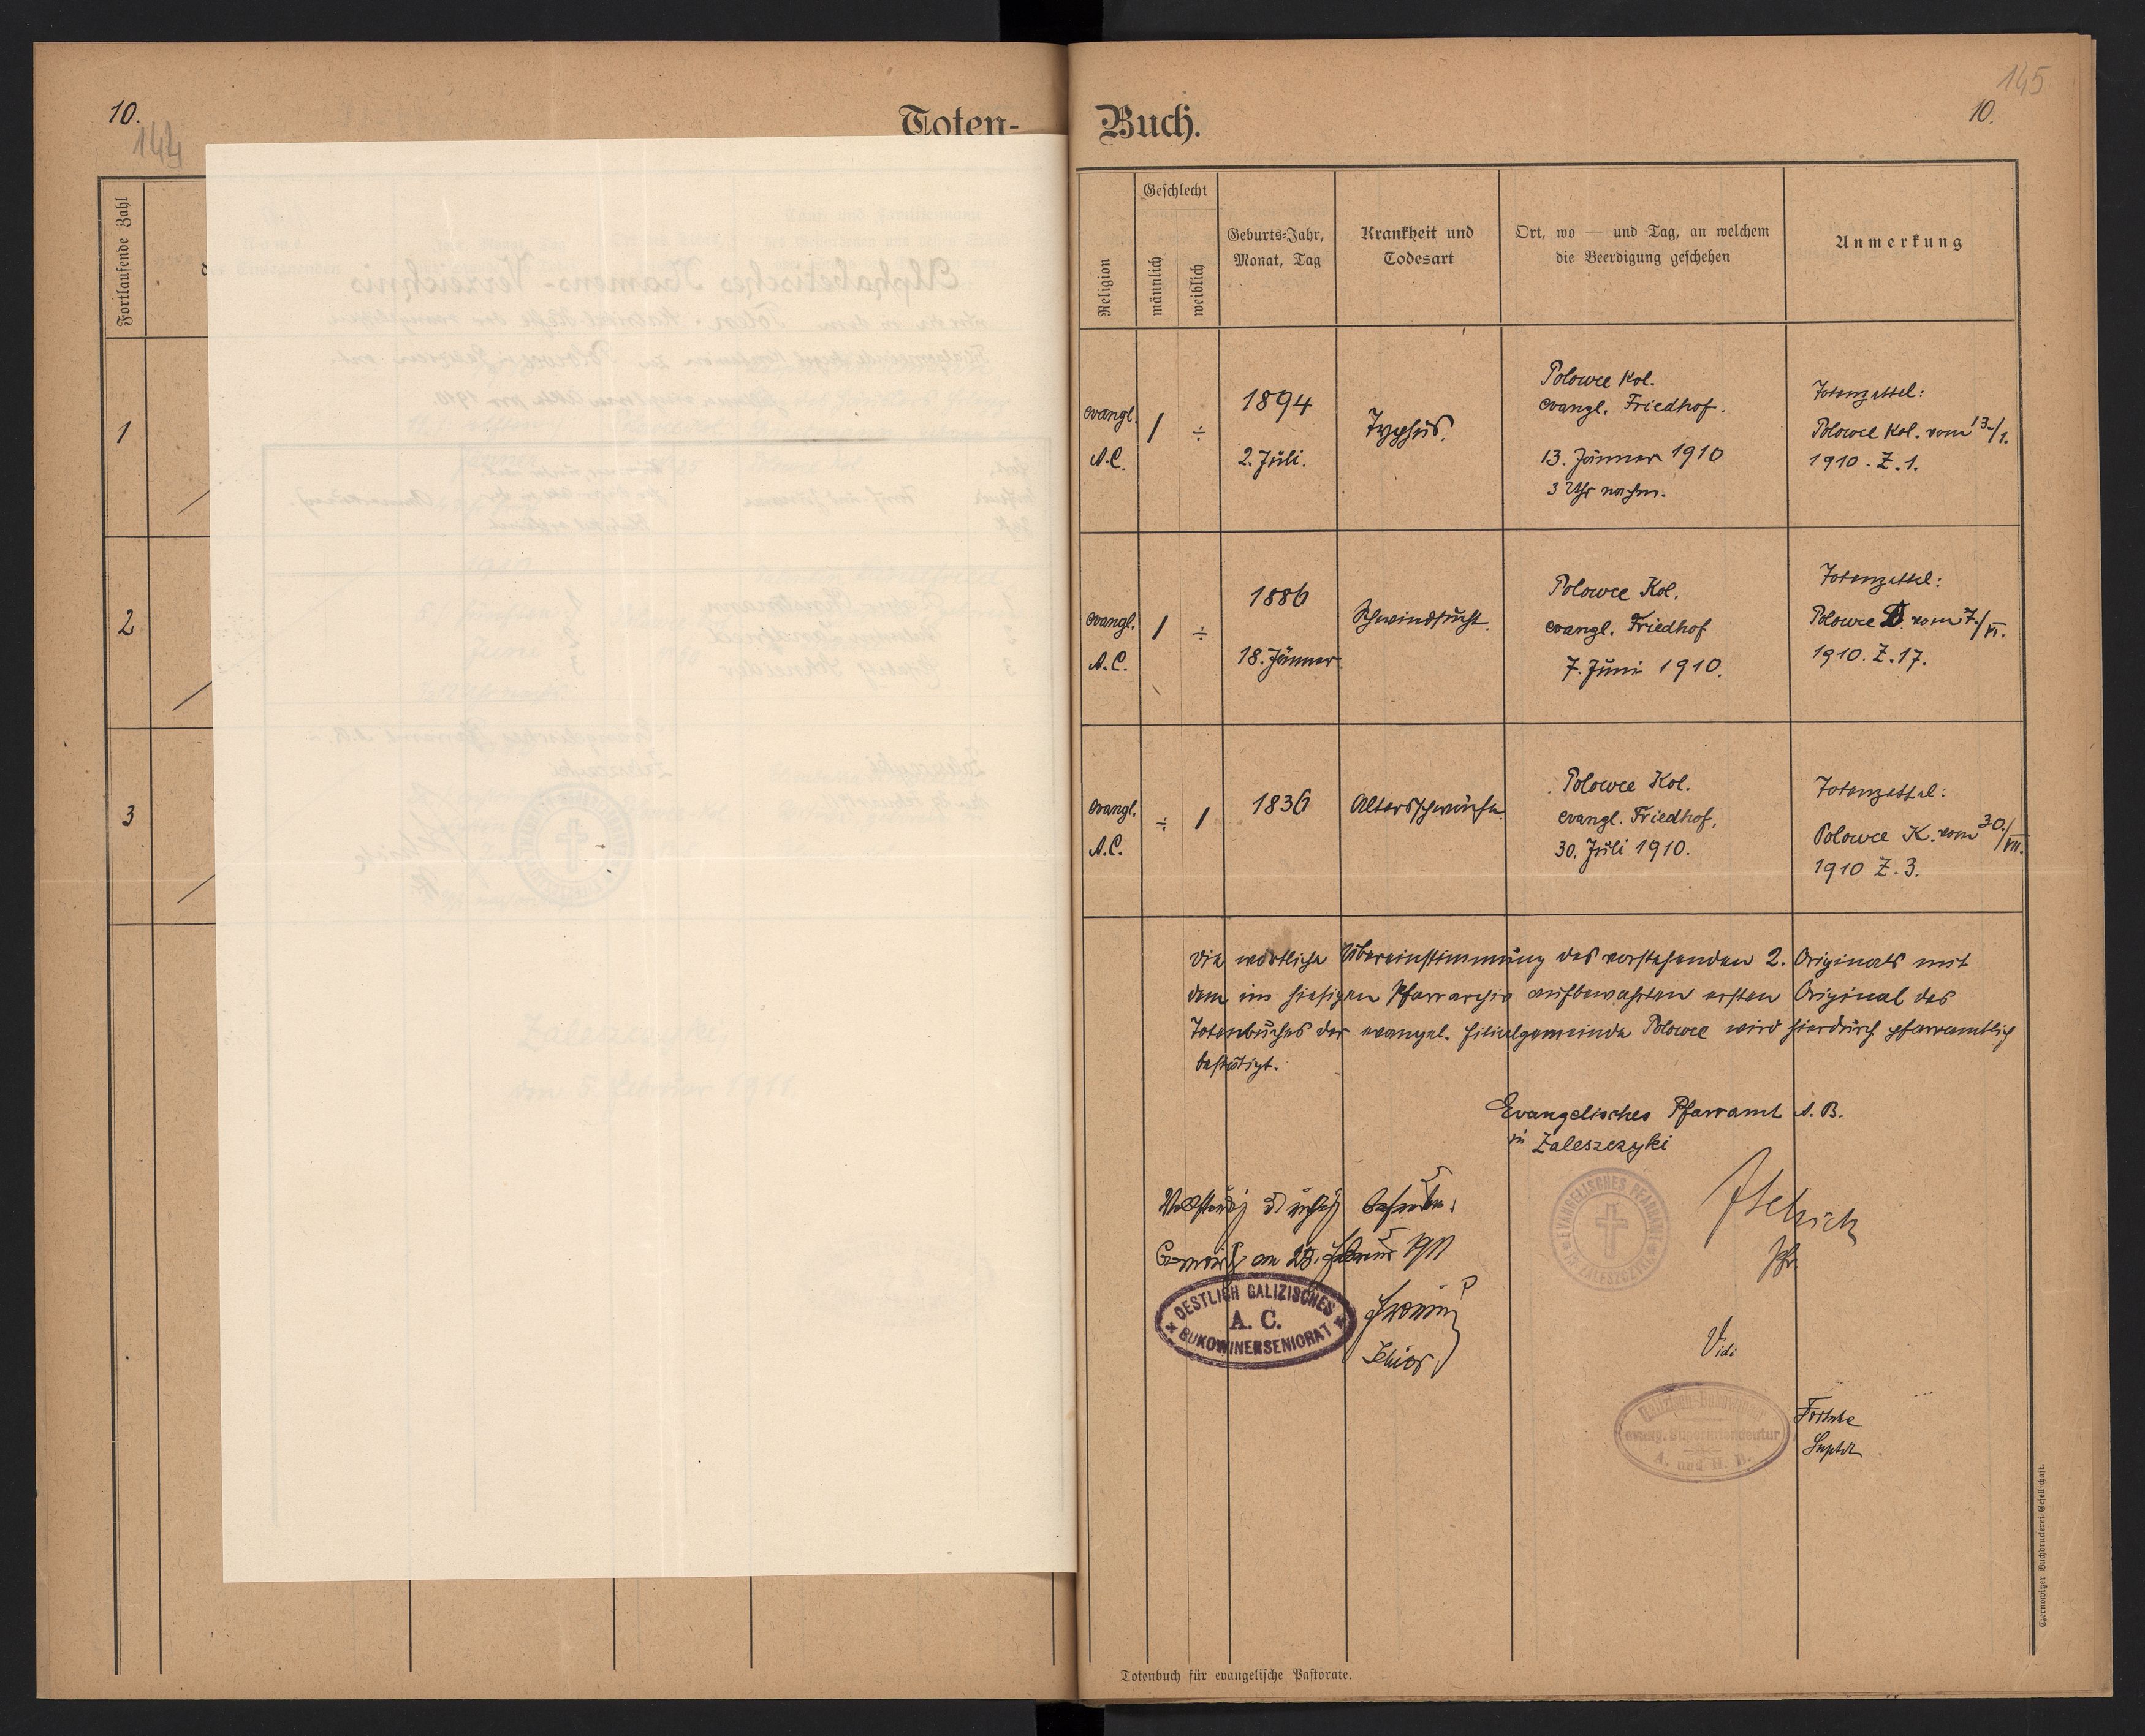 10.
144
Toten-
Fortlaufende Zahl
1
2
3
145
10.
Buch.
Religion
Geschlecht
männlich
weiblich
Geburts-Jahr,
Monat, Tag
Krankheit und
Todesart
Ort, wo — und Tag, an welchem
die Beerdigung geschehen
Anmerkung
evangl.
A.C.
1
÷
1894
2. Juli.
Typhus.
Polowce Kol.
evangl. Friedhof.
13. Jänner 1910
3 Uhr nachm.
Totenzettel:
Polowce Kol. vom 13./1.
1910. Z. 1.
evangl.
A.C.
1
÷
1886
18. Jänner
Schwindsucht.
Polowce Kol.
evangl. Friedhof
7. Juni 1910.
Totenzettel:
Polowce D. vom 7./VI.
1910. Z. 17.
evangl.
A.C.
÷
1
1836
Altersschwäche.
Polowce Kol.
evangl. Friedhof,
30. Juli 1910.
Totenzettel:
Polowce K. vom 30./VII.
1910 Z. 3.
Die wörtliche Übereinstimmung des vorstehenden 2. Originals mit
dem im hiesigen Pfarrarchiv aufbewahrten ersten Original des
Totenbuches der evangel. Filialgemeinde Polowce wird hierdurch pfarramtlich
bestätigt.
Evangelisches Pfarramt A. B.
in Zaleszczyki
EVANGELISCHES PFARRAMT
IN ZALESZCZYKI
Pfr.
Vollständig & richtig befunden.
Czernowitz am 28. Februar 1911
OESTLICH GALIZISCHES
A. C.
BUKOWINERSENIORAT
Senior
Vidi
evang. Superintendentur
A. und H. B.
Fritsche
Suptdt
Totenbuch für evangelische Pastorate.
Czernowitzer Buchdruckerei-Gesellschaft.